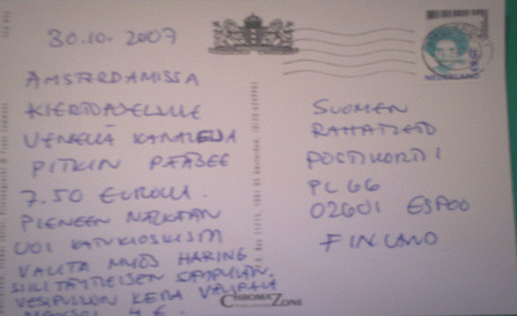 30.10.2007
AMSTERDAMISSA
KIERTOAJELULLE
VENEELLÄ KANAVIA
PITKIN PÄÄSEE
7.50 EUROLLA.
PIENEEN NÄLKÄÄN
VOI KATUKIOSKISTA
VALITA MYÖS HARING
SILLITÄYTTEISEN SÄMPYLÄN.
VESIPULLON KERA VÄLIPALA
4 €.
SUOMEN
RAHATIETO
POSTIKORTTI
PL 66
02601 ESPOO
FINLAND
NEDERLAND
CHROMAZONE